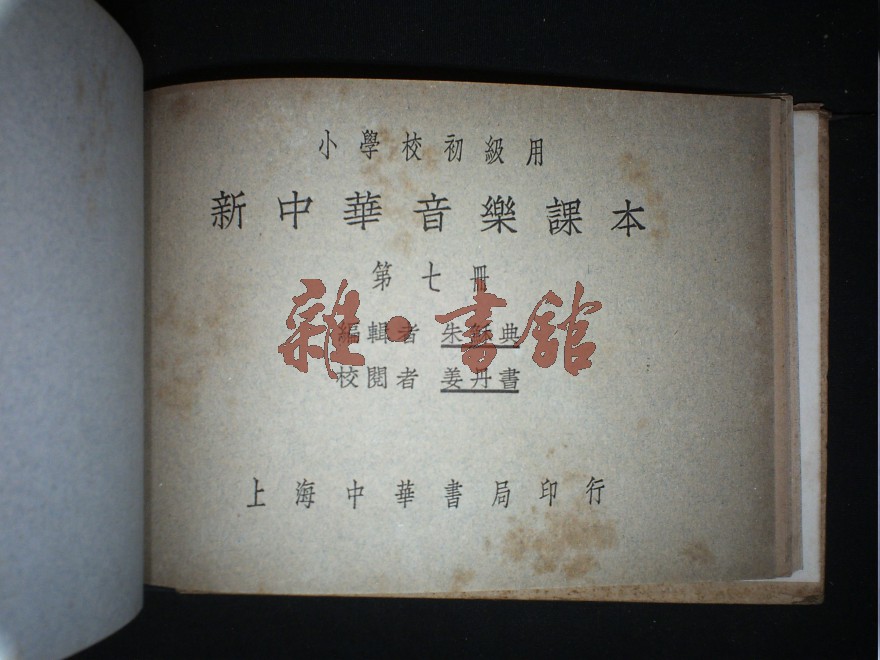 小學校初級用
新中華音樂課本
第七冊
編輯者 朱穌典
校閱者 姜丹書
上海中華書局印行
雜·書館